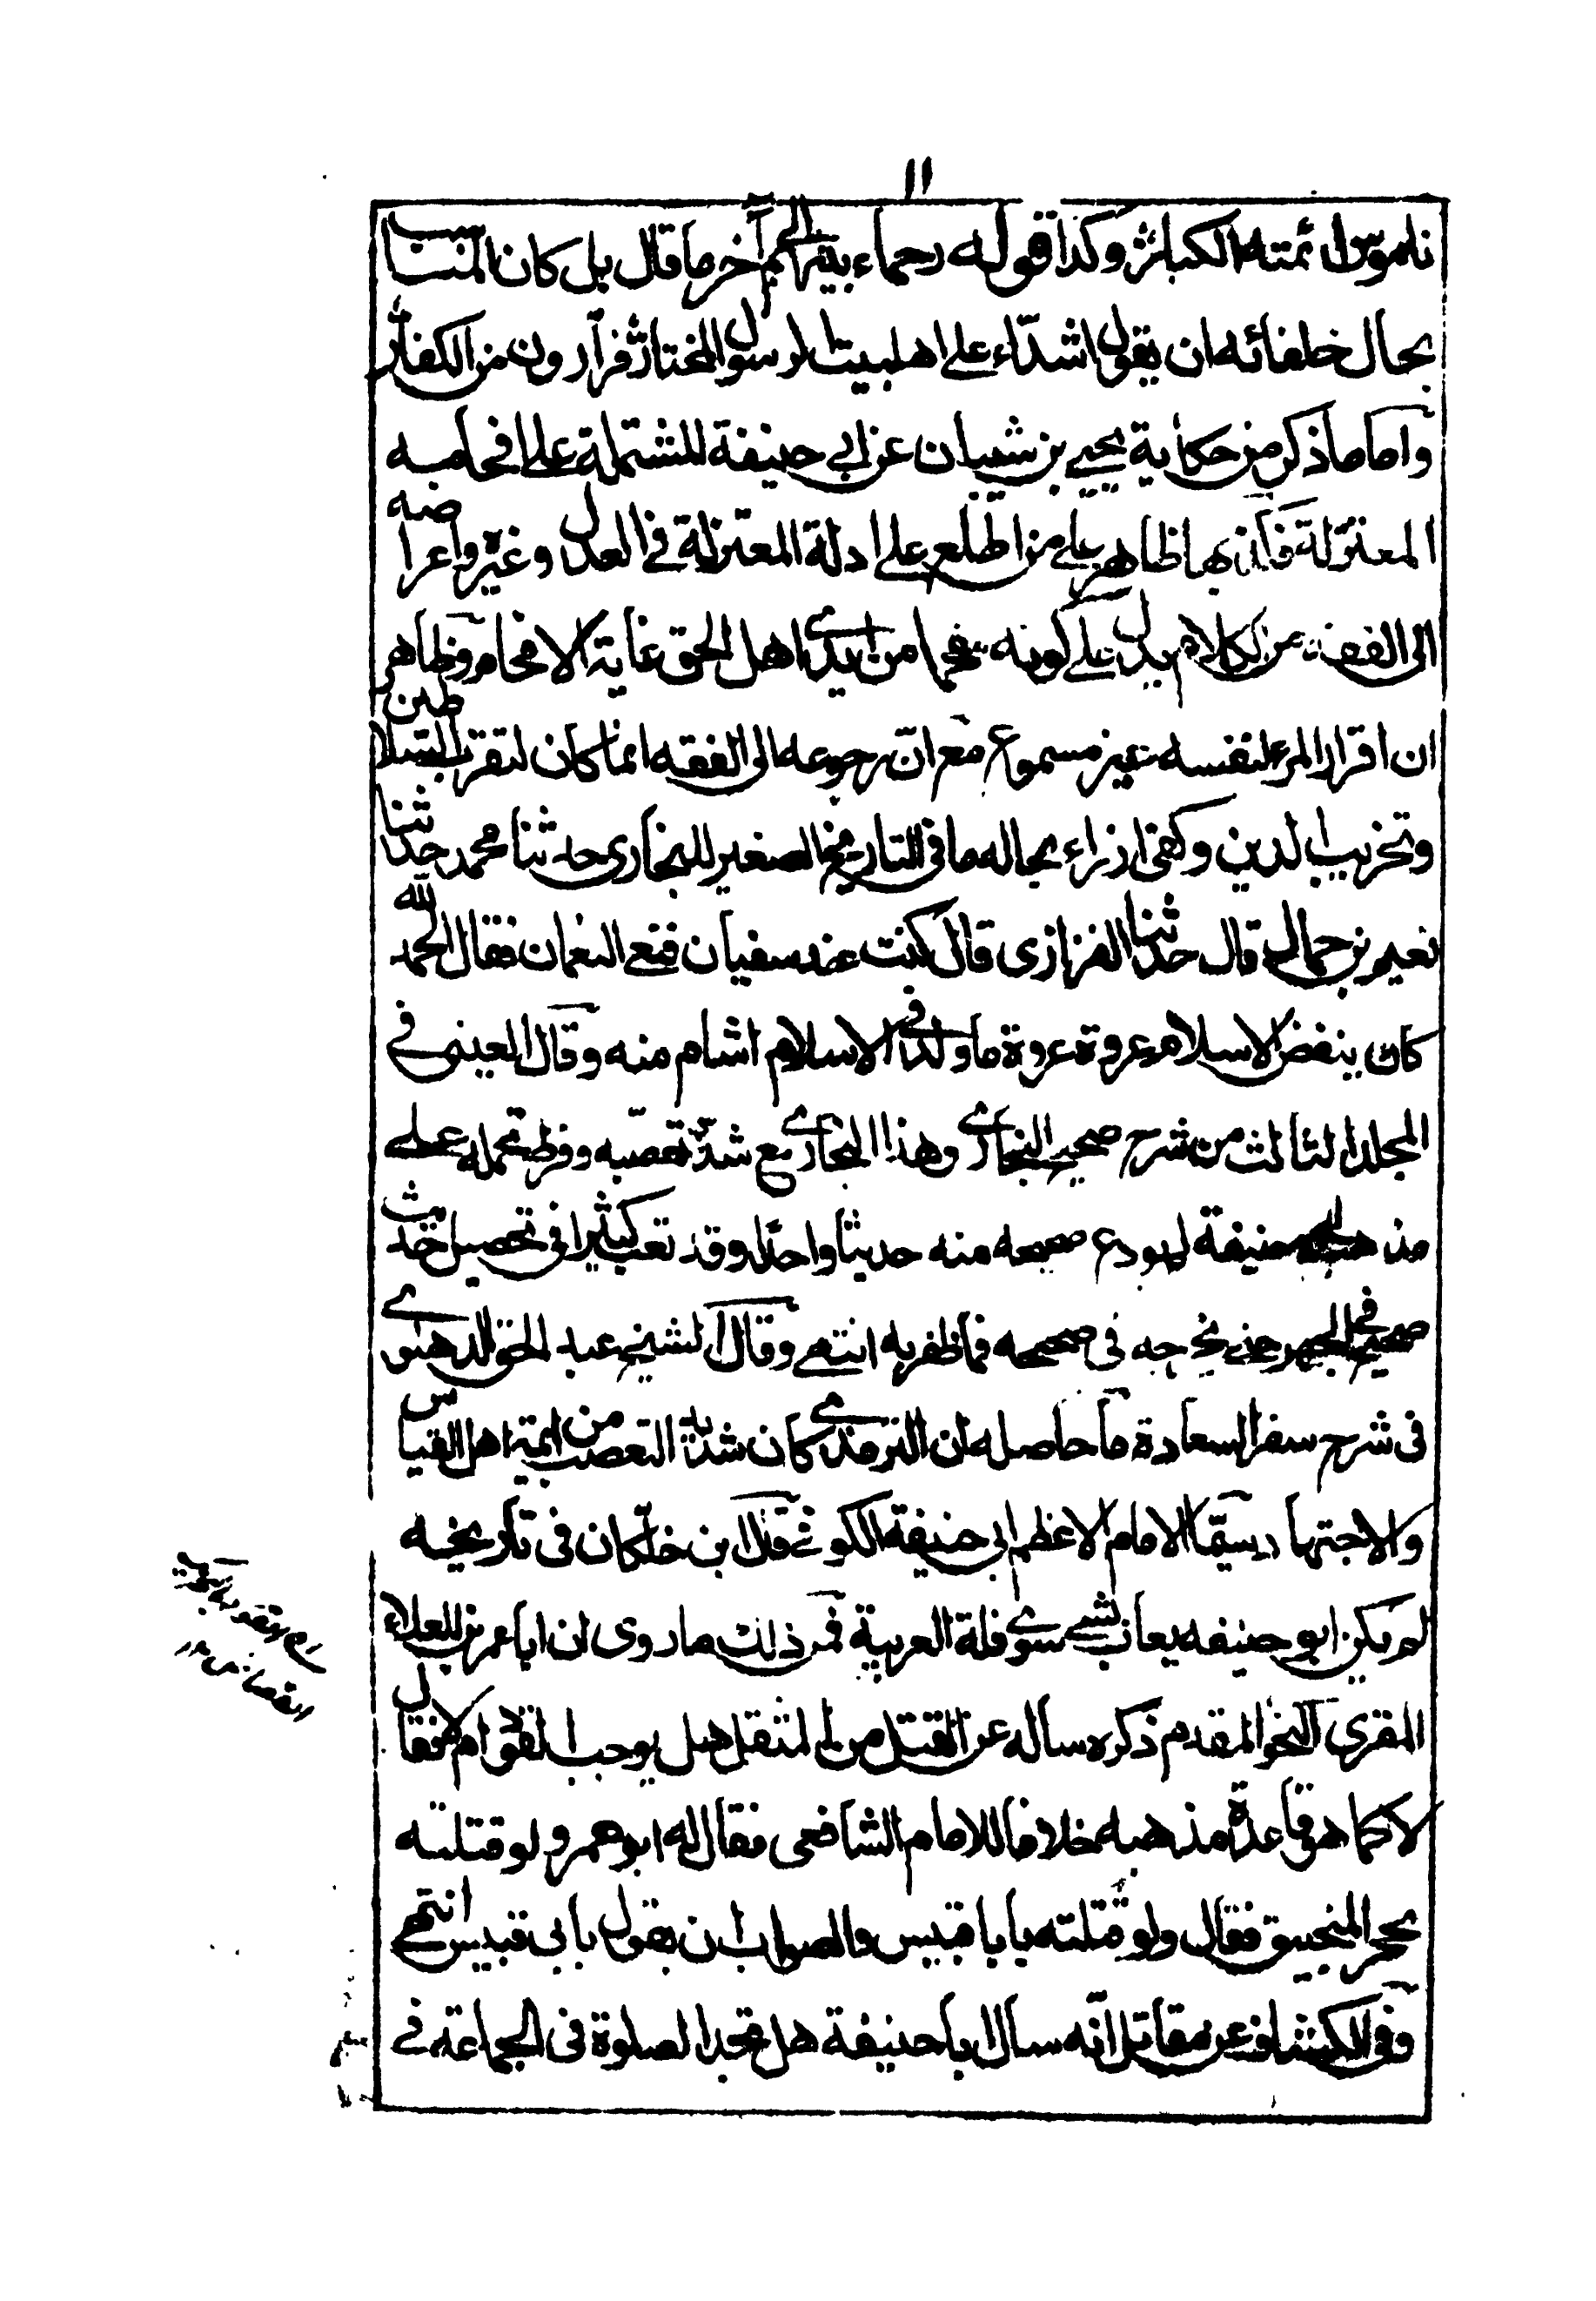 ١١
ناموس ائمته الكبار وكذا قوله رحماء بينهم الى آخر ما قال بل كان المناسب
بحال خلفائه ان يقول اشدّاء على اهلبيت الرسول المختار فرّارون من الكفار
واما ما ذكر من حكاية يحيى بن شيبان عن ابي حنيفة المشتملة على افحامه
المعتزلة فآن بها ظاهر على من اطلع على ادلة المعتزلة في العدل وغيره واعراضه
الى الفقه عن الكلام يدل على كونه مفحما من ايدى اهل الحق غاية الافحام وظاهر
ان اقرار المرء لنفسه غير مسموع مع انّ رجوعه الى الفقه انما كان لتقرب السلاطين
وتخريب الدين وكفى ازراء بحاله ما في التاريخ الصغير للبخارى حدثنا محمد حدثنا
نعيم بن حماد قال حدثنا الفزازى قال كنت عند سفيان فنعى النعمان فقال الحمد لله
كان ينقض الاسلام عروة عروة ما ولد في الاسلام اشام منه وقال العينى في
المجلد الثالث من شرح صحيح البخارى وهذا البخارى مع شدّة تعصّبه وفرط تحمله على
مذهب ابى حنيفة لم يودع صحيحه منه حديثا واحدا وقد تعب كثيرا في تحصيل حديث
صحيح في الجهر حتى يخرجه في صحيحه فما ظفر به انتهى وقال الشيخ عبد الحق الدهلوى
في شرح سفر السعادة ما حاصله ان الترمذى كان شديد التعصب من ائمة اهل القياس
والاجتهاد سيّما الامام الاعظم ابى حنيفة الكوفى وقال ابن خلّكان في تاريخه
لم يكن ابو حنيفه يعاب بشى سوى قلة العربية فمن ذلك ما روى ان ابا عمرو بن العلاء
المقرى النحوى المقدم ذكره ساله عن القتل من المثقل هل يوجب القود ام لا فقال
لا كما هو قاعدة مذهبه خلافا للامام الشافعى فقال له ابو عمرو ولو قتلته
بحجر المنجنيق فقال ولو قتلته بابا قبيس والصواب ان يقول بابى قبيس انتهى
وفى الكشاف عن مقاتل انّه سال ابا حنيفة هل تجد الصلوة في الجماعة في